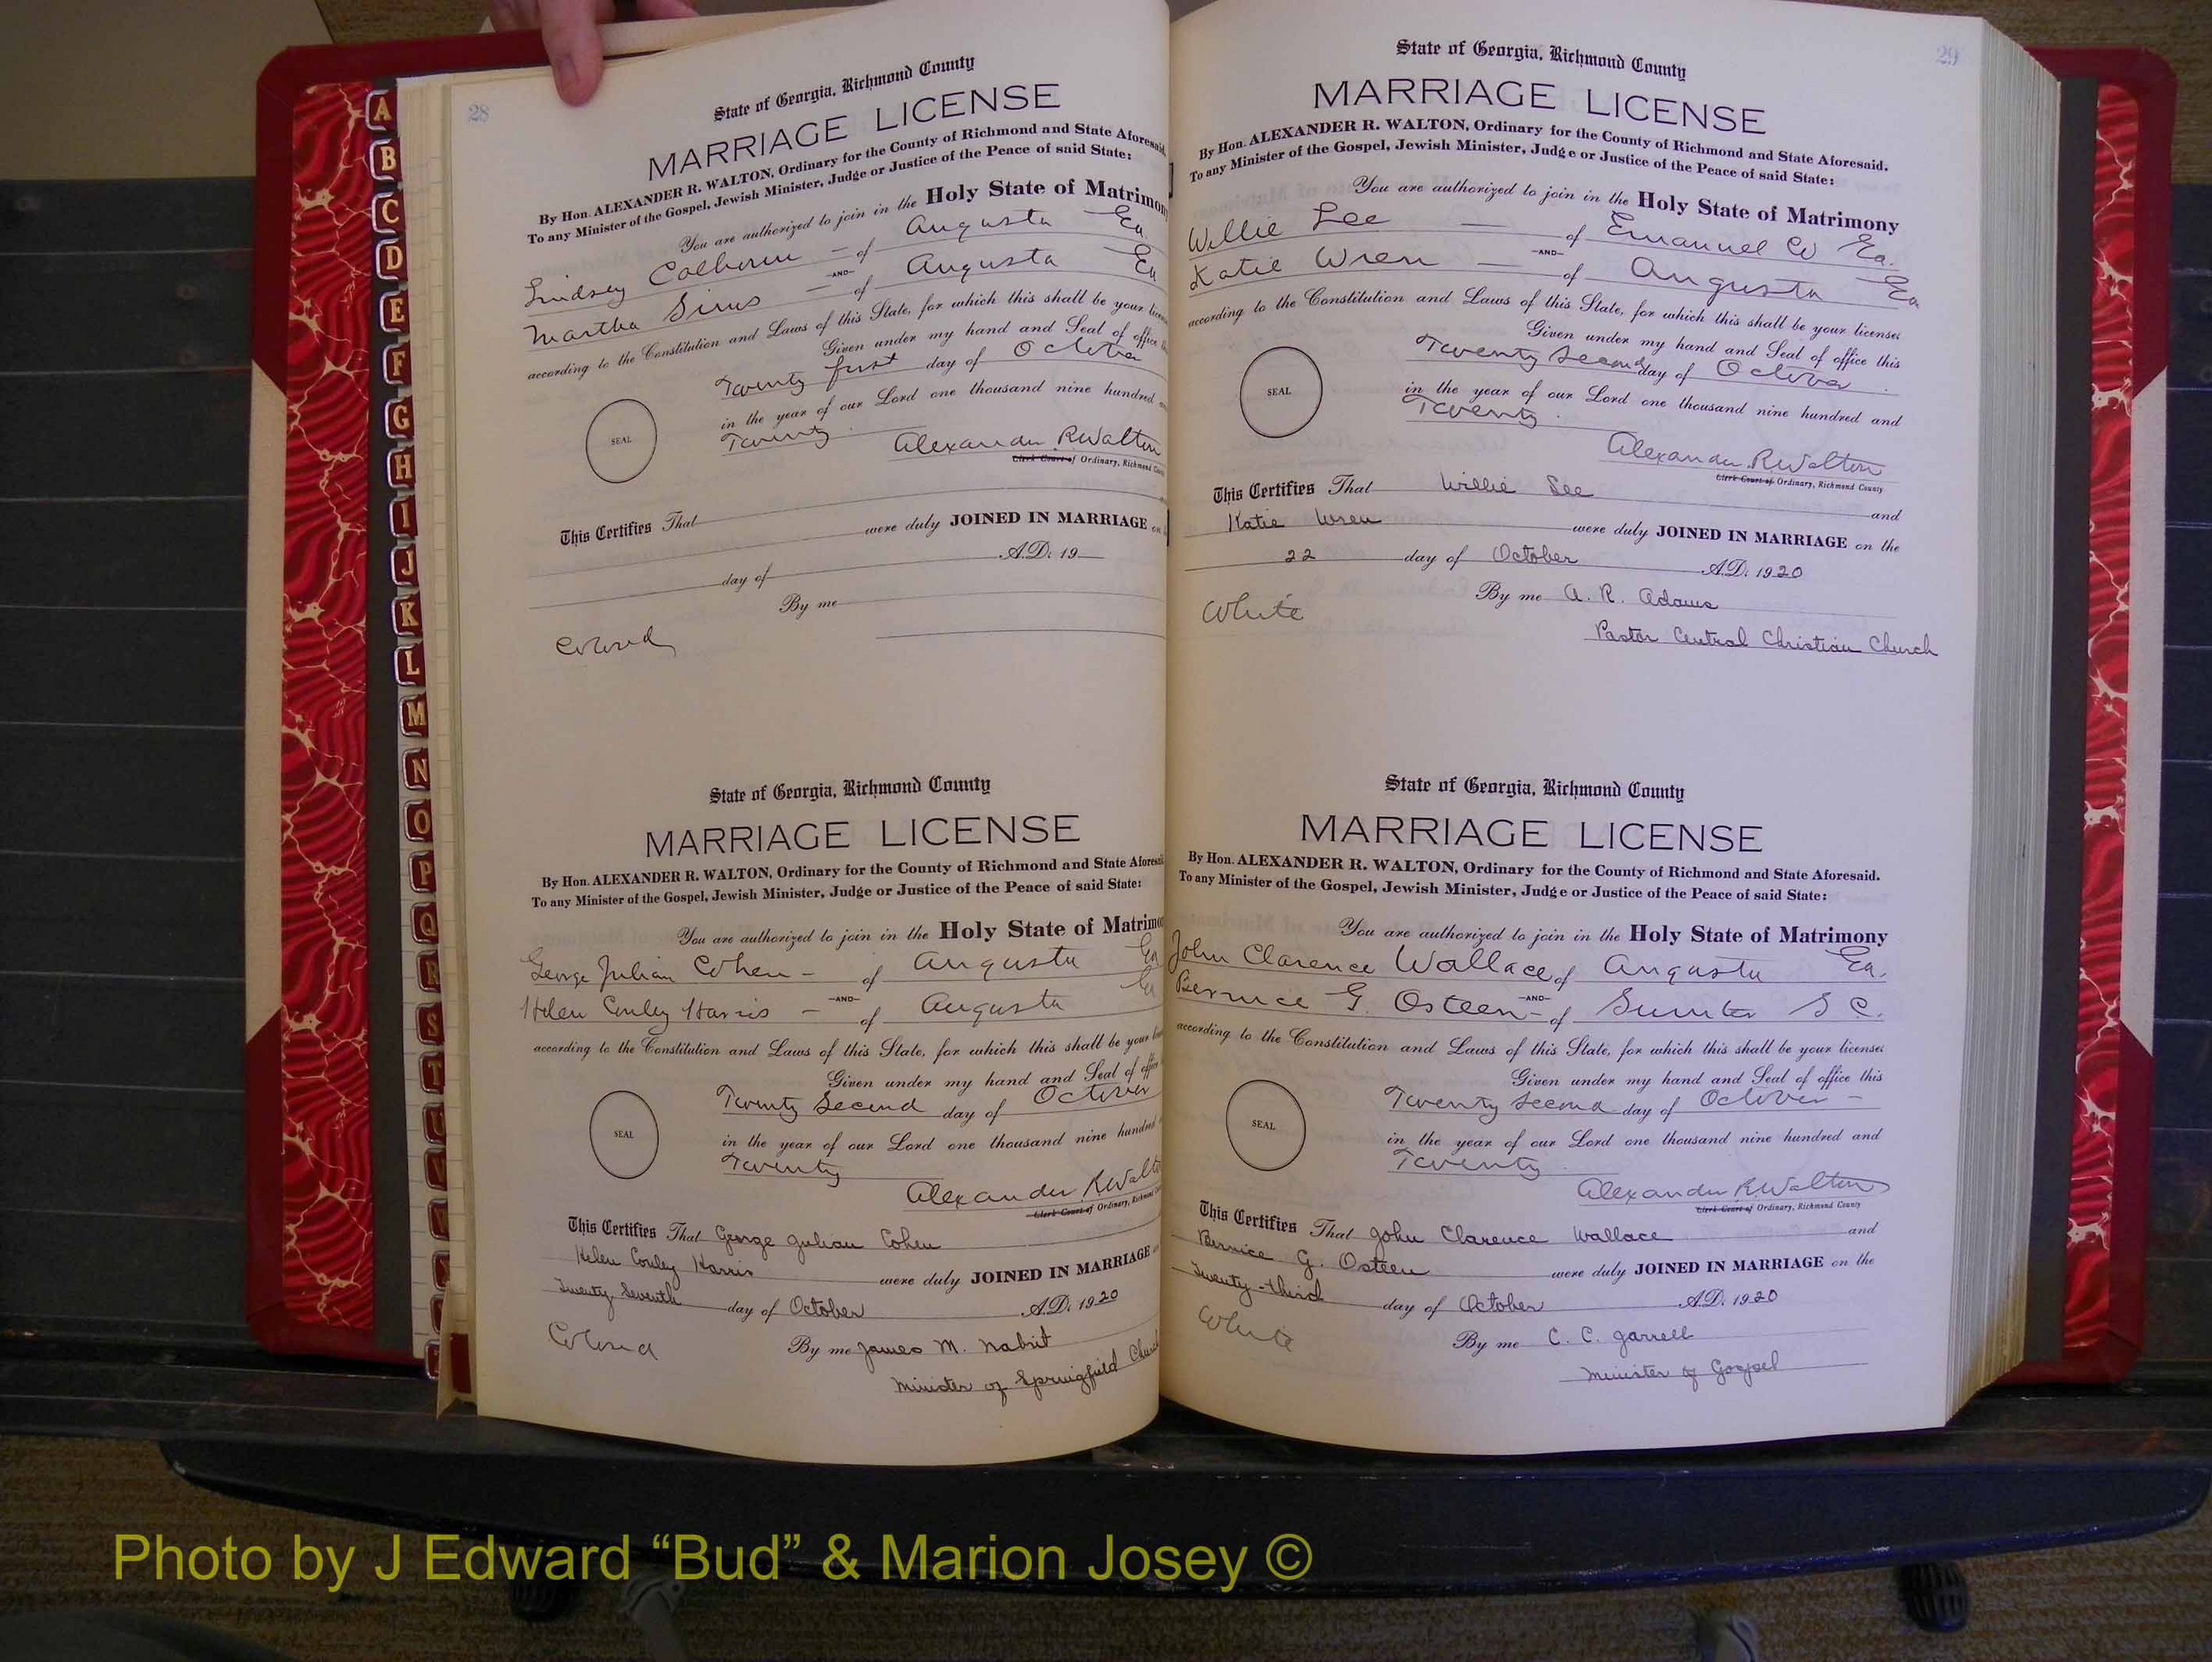 A
B
C
D
E
F
G
H
I
J
K
L
M
N
O
P
Q
R
S
T
U
V
28
State of Georgia, Richmond County
MARRIAGE LICENSE
By Hon. ALEXANDER R. WALTON, Ordinary for the County of Richmond and State Aforesaid
To any Minister of the Gospel, Jewish Minister, Judge or Justice of the Peace of said State:
You are authorized to join in the Holy State of Matrimony
Lindsey Calhoun — of Augusta Ga
—AND—
Martha Sims — of Augusta Ga
according to the Constitution and Laws of this State, for which this shall be your
Given under my hand and Seal of office
Twenty first day of October
in the year of our Lord one thousand nine hundred
Twenty
SEAL
Alexander R Walton
Clerk Court of Ordinary, Richmond
This Certifies That
were duly JOINED IN MARRIAGE on
day of A.D. 19
By me
Colored
State of Georgia, Richmond County
MARRIAGE LICENSE
By Hon. ALEXANDER R. WALTON, Ordinary for the County of Richmond and State
To any Minister of the Gospel, Jewish Minister, Judge or Justice of the Peace of said State:
You are authorized to join in the Holy State of
George Julian Cohen - of Augusta Ga
—AND—
Helen Conley Harris - of Augusta Ga
according to the Constitution and Laws of this State, for which this shall be your
Given under my hand and Seal of
Twenty Second day of October
in the year of our Lord one thousand nine hundred
Twenty
SEAL
Alexander R Walton
Clerk Court of Ordinary,
This Certifies That George Julian Cohen
Helen Conley Harris were duly JOINED IN MARRIAGE
Twenty-Seventh day of October A.D. 1920
Colored
By me James M. Nabrit
Minister of Springfield Church
29
State of Georgia, Richmond County
MARRIAGE LICENSE
By Hon. ALEXANDER R. WALTON, Ordinary for the County of Richmond and State Aforesaid.
To any Minister of the Gospel, Jewish Minister, Judge or Justice of the Peace of said State:
You are authorized to join in the Holy State of Matrimony
Willie Lee — of Emanuel Co Ga.
—AND—
Katie Wren — of Augusta Ga
according to the Constitution and Laws of this State, for which this shall be your license:
Given under my hand and Seal of office this
Twenty Second day of October
in the year of our Lord one thousand nine hundred and
Twenty
SEAL
Alexander R Walton
Clerk Court of Ordinary, Richmond County
This Certifies That Willie Lee
and
Katie Wren were duly JOINED IN MARRIAGE on the
22 day of October A.D. 1920
White
By me A. R. Adams
Pastor Central Christian Church
State of Georgia, Richmond County
MARRIAGE LICENSE
By Hon. ALEXANDER R. WALTON, Ordinary for the County of Richmond and State Aforesaid.
To any Minister of the Gospel, Jewish Minister, Judge or Justice of the Peace of said State:
You are authorized to join in the Holy State of Matrimony
John Clarence Wallace of Augusta Ga.
—AND—
Bernice G. Osteen - of Sumter S C.
according to the Constitution and Laws of this State, for which this shall be your license:
Given under my hand and Seal of office this
Twenty Second day of October -
in the year of our Lord one thousand nine hundred and
Twenty
SEAL
Alexander R Walton
Clerk Court of Ordinary, Richmond County
This Certifies That John Clarence Wallace and
Bernice G. Osteen were duly JOINED IN MARRIAGE on the
Twenty-third day of October A.D. 1920
White
By me C. C. Jarrell
Minister of Gospel
Photo by J Edward “Bud” & Marion Josey ©